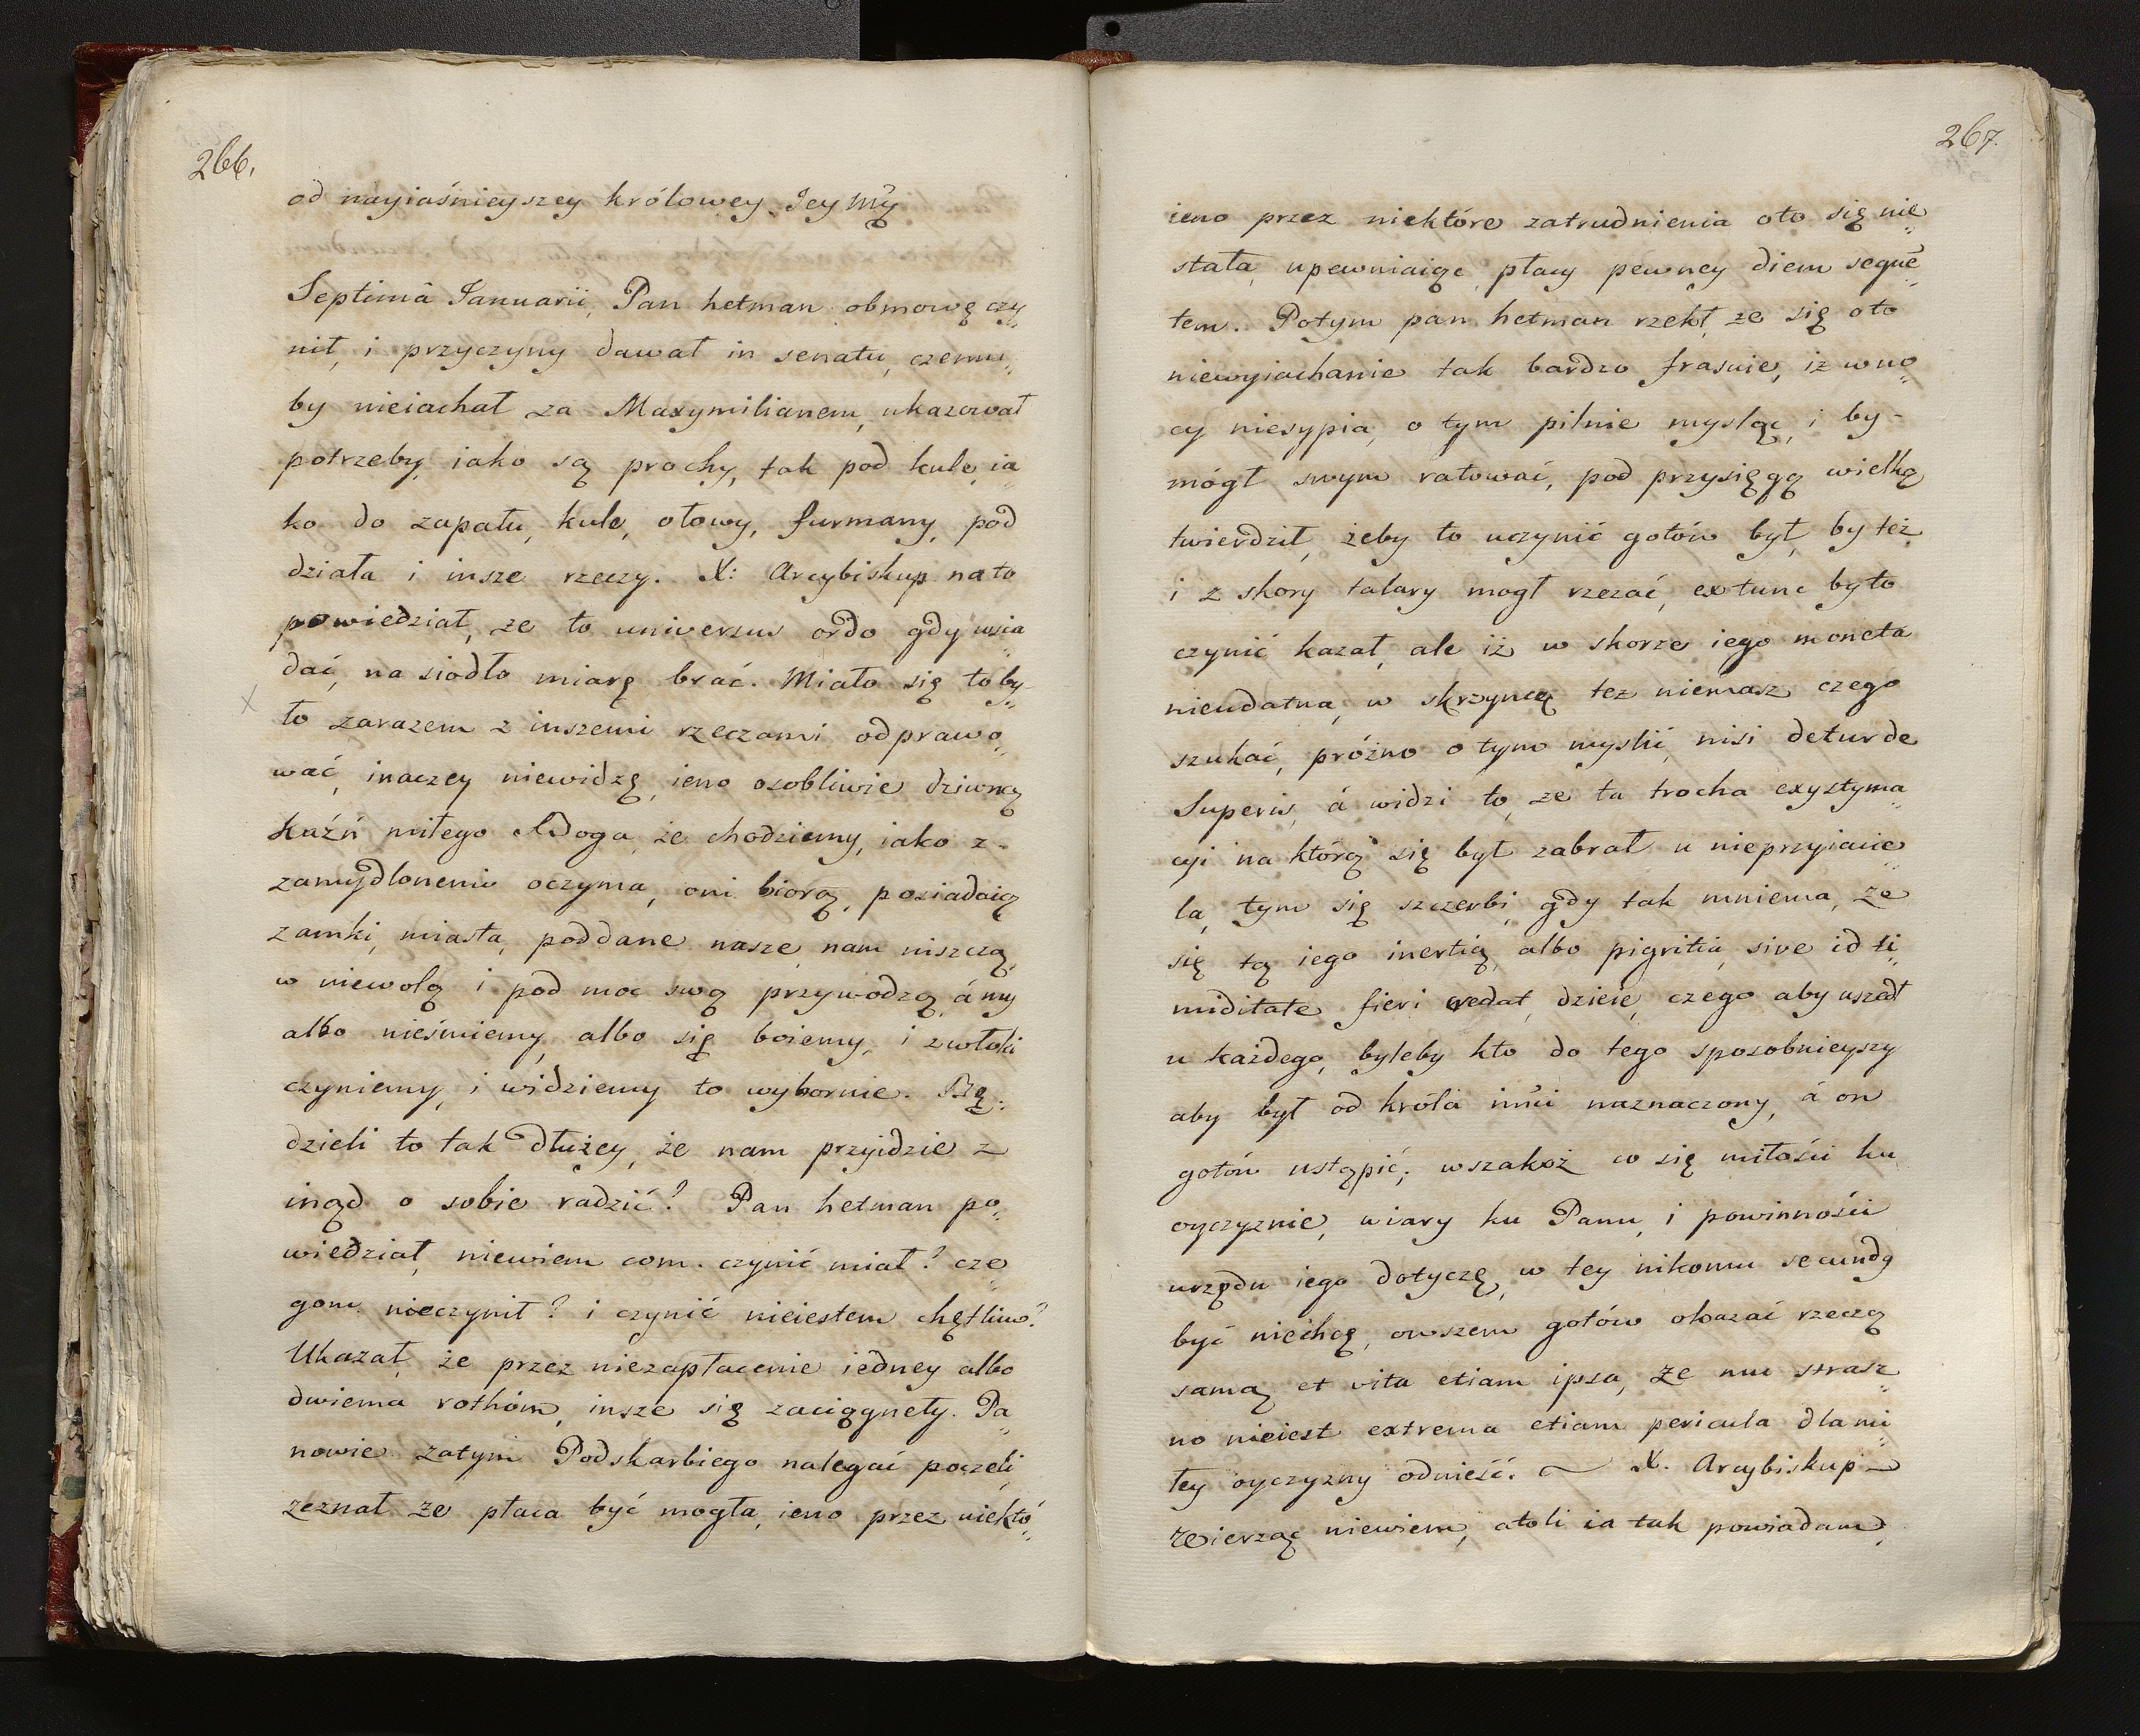 266.
od nayiaśnieyszey królowey Jey Mćy
Septimâ Januarii, Pan hetman obmowę czy„
nił, i przyczyny dawał in senatu, czemu„
by nieiachał za Maxymilianem, ukazował
potrzeby, iako są prochy, tak pod kule, ia„
ko do zapału, kule, ołowy, furmany, pod
działa i insze rzeczy. X: Arcybiskup na to
powiedział, że to universus ordo gdy wsia„
dać, na siodło miarę brać. Miało się to by„
ło zarazem z inszemi rzeczami odprawo„
wać, inaczey niewidzę, ieno osobliwie dziwną
kaźń miłego Boga, że chodziemy, iako z-
zamydlonemi oczyma, oni biorą, posiadaią
zamki, miasta, poddane nasze, nam niszczą,
w niewolą i pod moc swą przywodzą, á my
albo nieśmiemy, albo się boiemy, i zwłoki
czyniemy, i widziemy to wybornie. Bę„
dzieli to tak dłużey, że nam przyidzie z
inąd o sobie radzić? Pan hetman po„
wiedział, niewiem com. czynić miał? cze„
gom nieczynił? i czynić nieiestem chętliw?
Ukazał, że przez niezapłacenie iedney albo
dwiema rothom, insze się zaciągnęły. Pa„
nowie zatym Podskarbiego nalegać poczęli,
zeznał że płaca być mogła, ieno przez niektó„
267.
ieno przez niektóre zatrudnienia oto się nie„
stała, upewniaiąc płacy pewney diem seque„
tem. Potym pan hetman rzekł, że się oto
niewyiachanie tak bardzo frasuie, iż wno„
cy niesypia, o tym pilnie myśląc, i by-
mógł swym ratować, pod przysięgą wielką
twierdził, żeby to uczynić gotów był, by też
i z skory talary mogł rzezać, extunc by to
czynić kazał, ale iż w skorze iego moneta
nieudatna, w skrzynce też niemasz czego
szukać, próżno o tym myslić, nisi detur de
Superis, á widzi to, że ta trocha exystyma„
cyi na którą się był zabrał u nieprzyiacie„
la, tym się szczerbi, gdy tak mniema, że
się tą iego inertią, albo pigritia, sive id ti„
miditate fieri credat, dzieie, czego aby uszedł
u każdego, byleby kto do tego sposobnieyszy
aby był od króla imći naznaczony, á on
gotów ustąpić; wszakoż co się miłości ku
oyczyznie, wiary ku Panu, i powinności
urzędu iego dotyczę, w tey nikomu secundą
być niechcę, owszem gotów okazać rzeczą
samą, et vita etiam ipsa, że mu strasz„
no nieiest extrema etiam pericula dla mi„
łey oyczyzny odnieść. ~ X. Arcybiskup -
Wierząc niewiem, atoli ia tak powiadam,